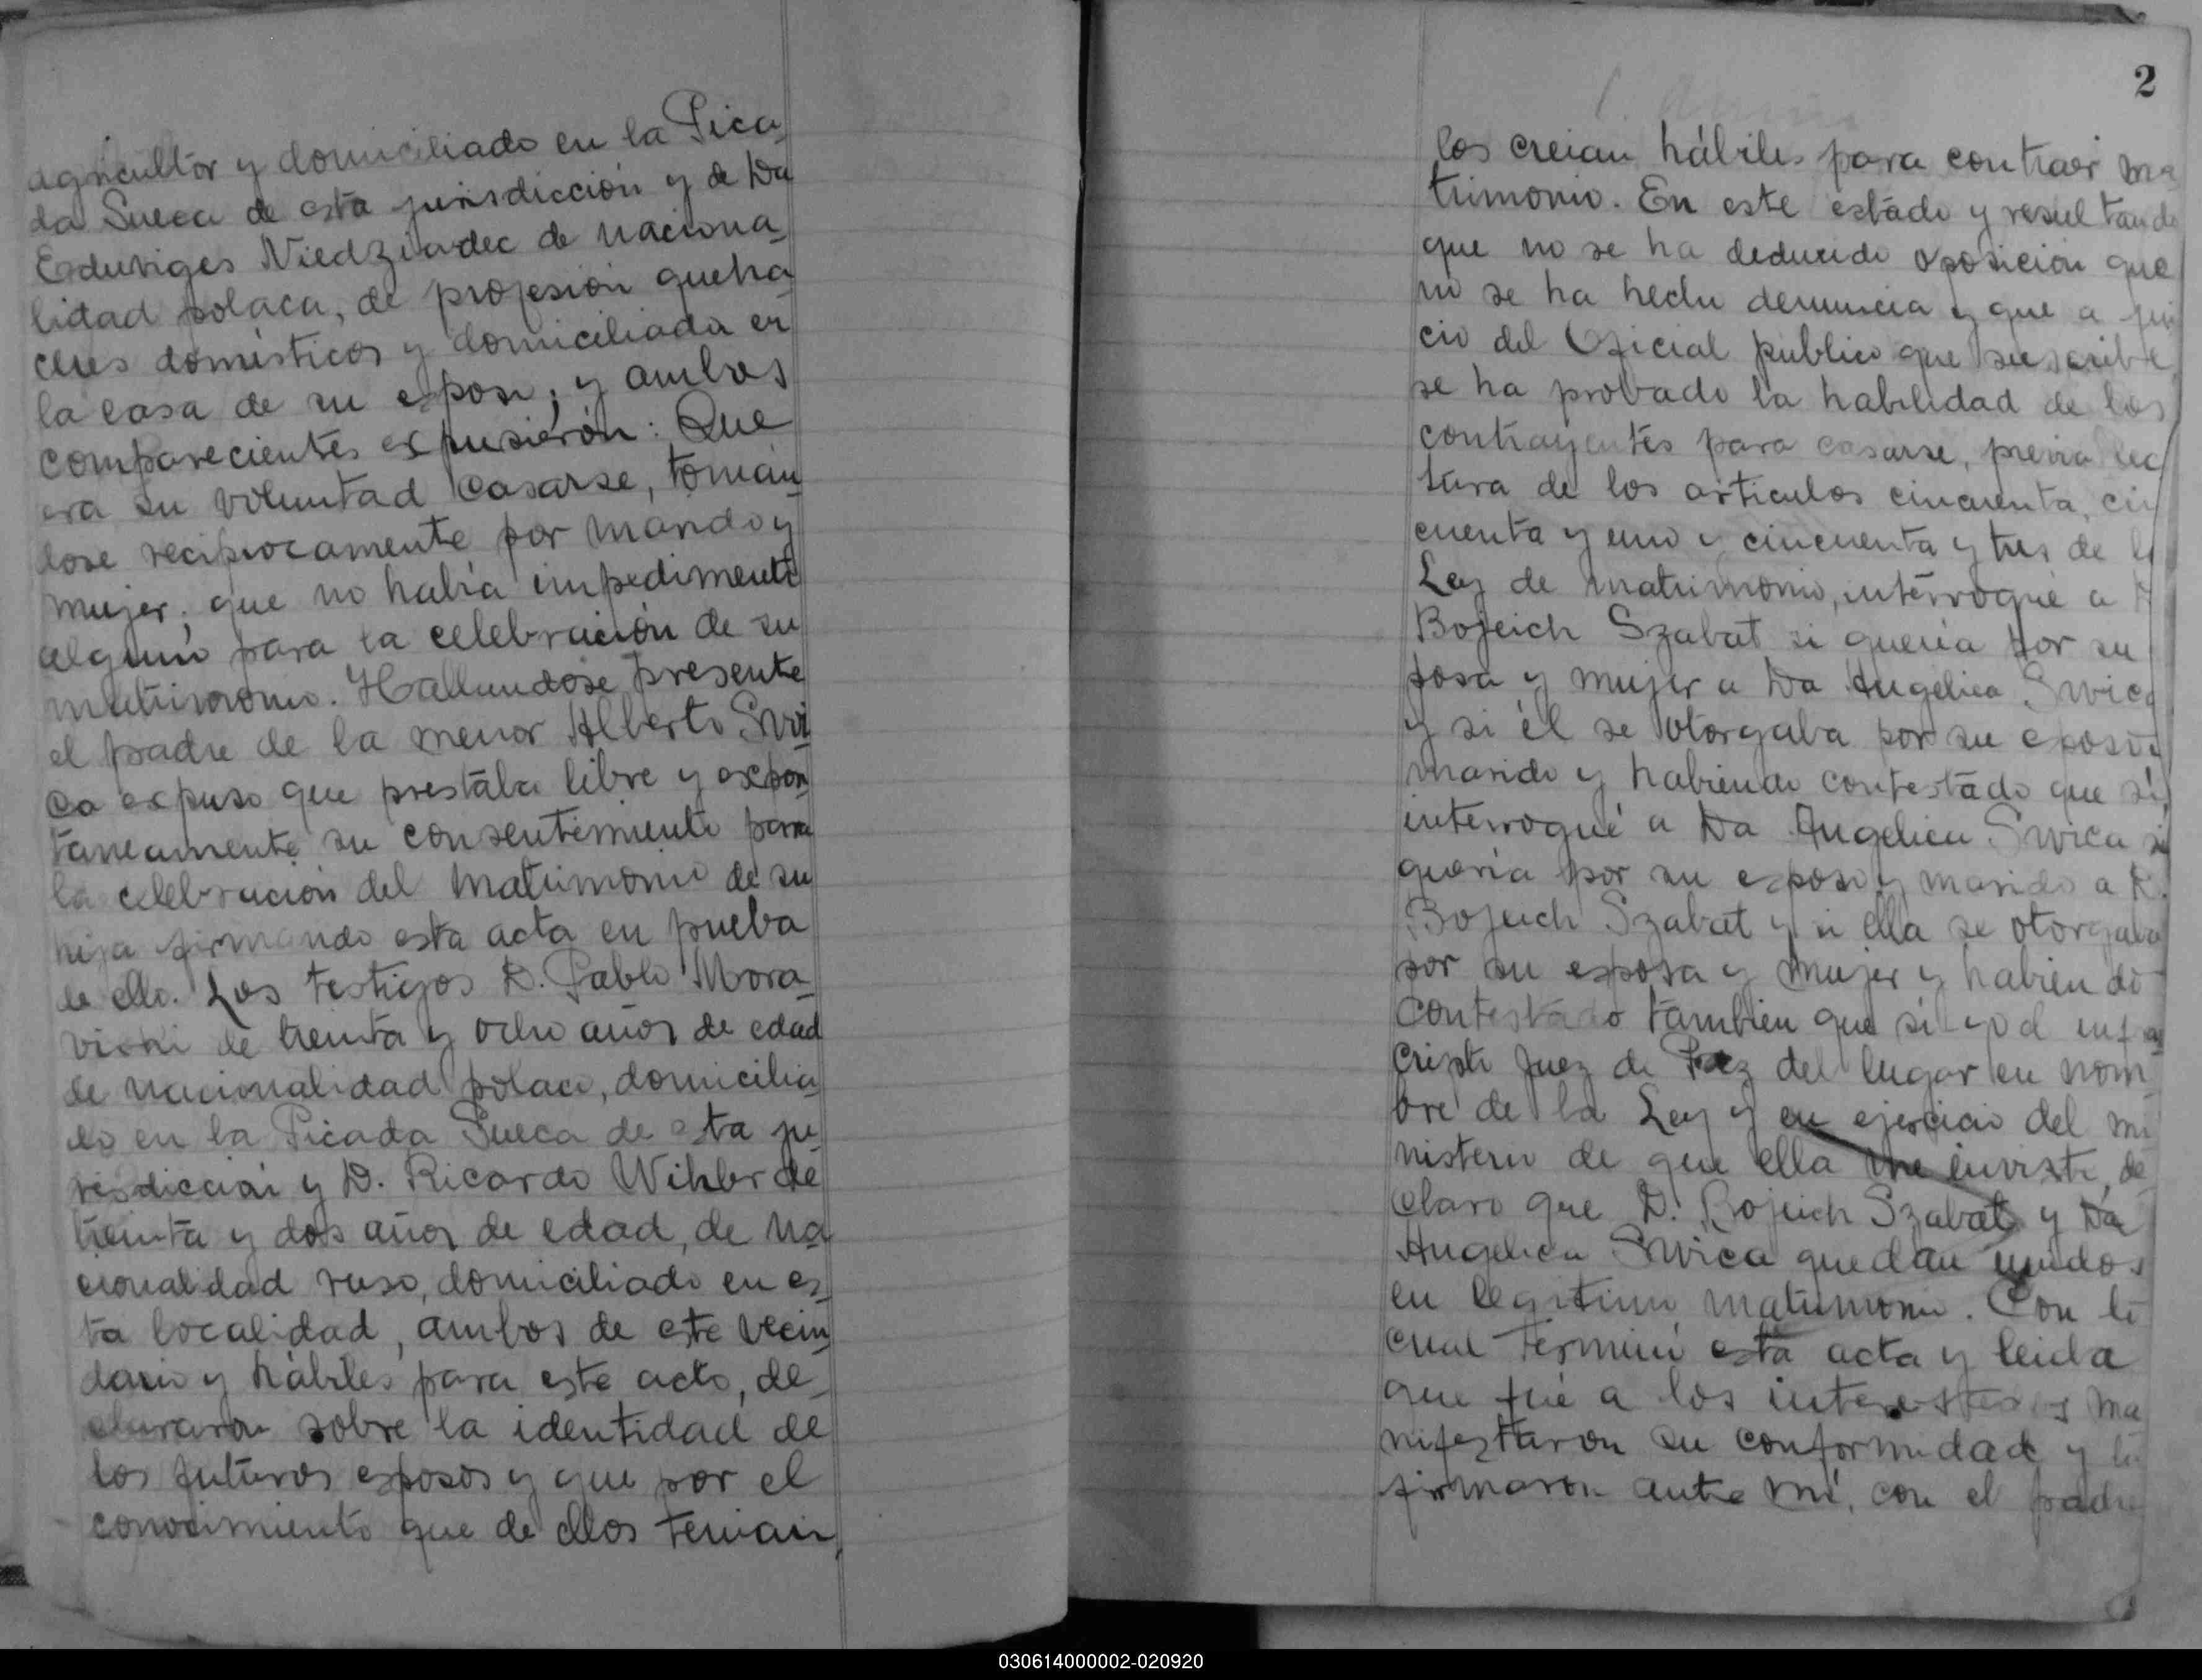 agricultor y domiciliado en la Pica
da Sueca de esta jurisdicción y de Da
Eduviges Niedzviadec de naciona
lidad polaca, de profesión queha
ceres domésticos y domiciliada en
la casa de su esposo; y ambos
comparecientes expusierón: Que
era su voluntad casarse, toman
dose reciprocamente por marido y
mujer; que no había impedimento
alguno para la celebración de su
matrimonio. Hallandose presente
el padre de la menor Alberto Swi
ca expuso que prestaba libre y expon
taneamente su consentimiento para
la celebración del matrimonio de su
hija firmando esta acta en prueba
de ello. Los testigos D. Pablo Mora
viski de treinta y ocho años de edad
de nacionalidad polaco, domicilia
do en la Picada Sueca de esta ju
risdicción y D. Ricardo Wihler de
treinta y dos años de edad, de na
cionalidad ruso, domiciliado en es
ta localidad, ambos de este vecin
dario y hábiles para este acto, de
clararon sobre la identidad de
los futuros esposos y que por el
conocimiento que de ellos tenian,
2
los creian hábiles para contraer ma
trimonio. En este estado y resultando
que no se ha deducido oposición que
no se ha hecho denuncia y que a jui
cio del Oficial publico que suscribe
se ha probado la habilidad de los
contrayentes para casarse, previa lec
tura de los articulos cincuenta, cin
cuenta y uno y cincuenta y tres de la
Ley de matrimonio, interrogué a D
Bojeich Szabat si quería por su
posa y mujer a Da Angelica Swica
y si él se otorgaba por su esposo
marido y habiendo contestado que sí,
interrogué a Da Angelica Swica si
quería por su esposo y marido a D.
Bojeich Szabat y si ella se otorgaba
por su esposa y mujer y habiendo
contestado tambien que sí yo el infras
cripto Juez de Paz del lugar en nom
bre de la Ley y en ejercicio del mi
nisterio de que ella me inviste, de
claro que D. Bojeich Szabat y Da
Angelica Swica quedan unidos
en legitimo matrimonio. Con lo
cual terminó esta acta y leida
que fué a los interesados ma
nifestaron su conformidad y la
firmaron ante mí, con el padre
030614000002-020920